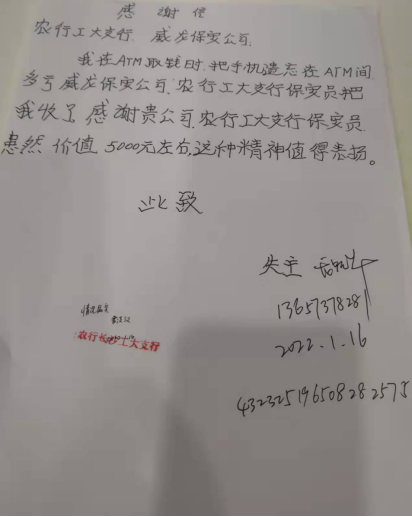 感谢信
农行工大支行、威龙保安公司
我在ATM取钱时,把手机遗忘在ATM间
多亏威龙保安公司、农行工大支行保安员把
我收了,感谢贵公司、农行工大支行保安员
惠然 价值5000元左右,这种精神值得表扬。
此致
失主
13657378281
2022.1.16
情况属实
农行长沙工大支行
432325196508282575